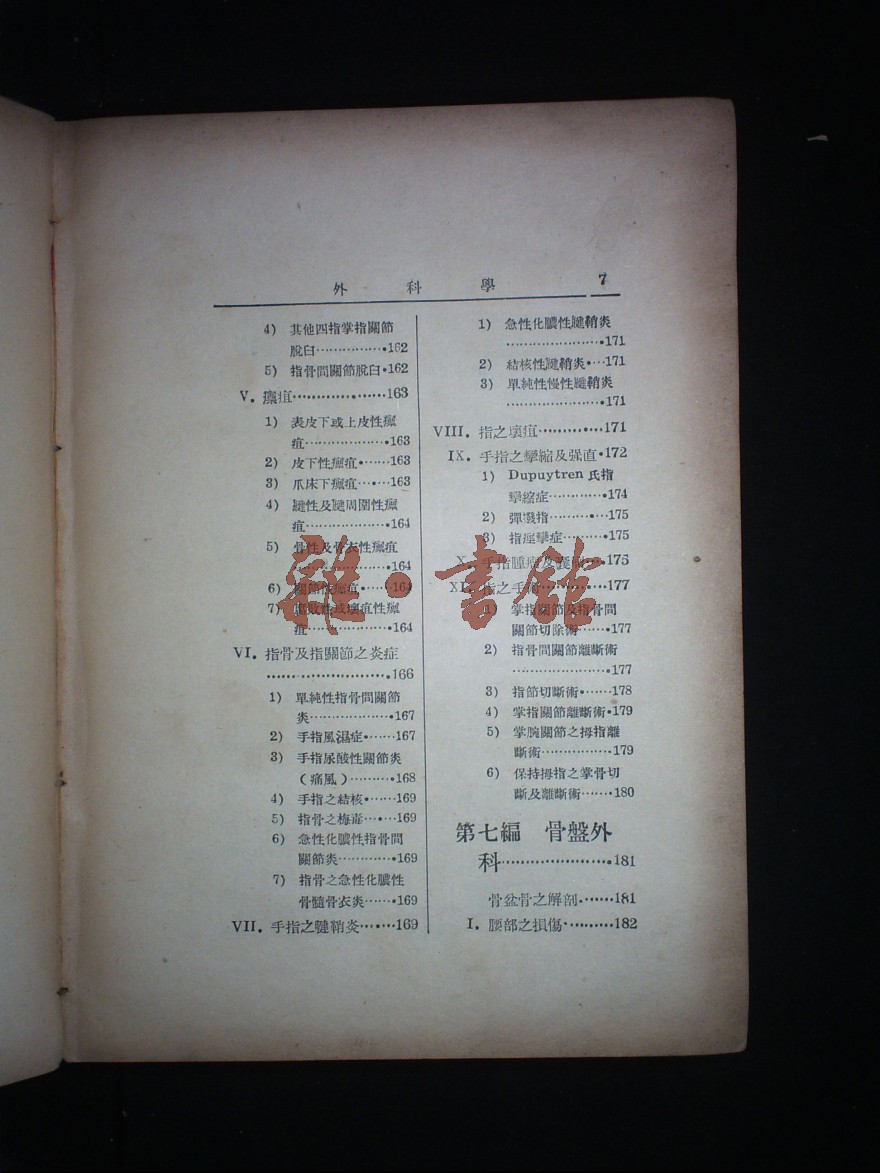 外科學 7
4) 其他四指掌指關節
脫臼……………162
5) 指骨間關節脫臼·162
V. 瘭疽………………163
1) 表皮下或上皮性瘭
疽………………163
2) 皮下性瘭疽……163
3) 爪床下瘭疽……163
4) 腱性及腱周圍性瘭
疽………………164
5) 骨性及骨衣性瘭疽
…………………164
6) 關節性瘭疽……164
7) 腐敗性或壞疽性瘭
疽………………164
VI. 指骨及指關節之炎症
……………………166
1) 單純性指骨間關節
炎………………167
2) 手指風濕症……167
3) 手指尿酸性關節炎
(痛風)………168
4) 手指之結核……169
5) 指骨之梅毒……169
6) 急性化膿性指骨間
關節炎…………169
7) 指骨之急性化膿性
骨髓骨衣炎……169
VII. 手指之腱鞘炎……169
1) 急性化膿性腱鞘炎
…………………171
2) 結核性腱鞘炎…171
3) 單純性慢性腱鞘炎
…………………171
VIII. 指之壞疽…………171
IX. 手指之攣縮及强直·172
1) Dupuytren 氏指
攣縮症…………174
2) 彈撥指…………175
3) 指痙攣症………175
X. 手指腫瘍及…175
XI. 指之手術…………177
1) 掌指關節及指骨間
關節切除術……177
2) 指骨間關節離斷術
…………………177
3) 指節切斷術……178
4) 掌指關節離斷術·179
5) 掌腕關節之拇指離
斷術……………179
6) 保持拇指之掌骨切
斷及離斷術……180
第七編 骨盤外
科…………………181
骨盆骨之解剖……181
I. 腰部之損傷………182
雜·書館